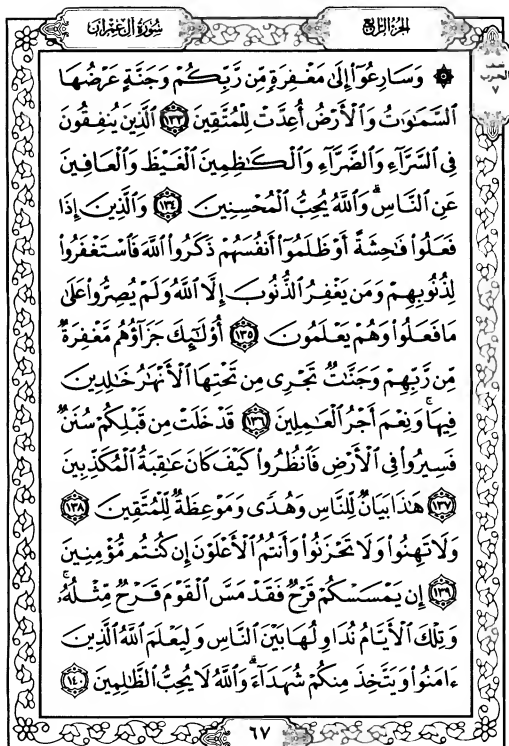 سُورَةُ آلِ عِمْرَان
الجُزْءُ الرَّابِعُ
۞ وَسَارِعُوٓا۟ إِلَىٰ مَغْفِرَةٍ مِّن رَّبِّكُمْ وَجَنَّةٍ عَرْضُهَا
ٱلسَّمَٰوَٰتُ وَٱلْأَرْضُ أُعِدَّتْ لِلْمُتَّقِينَ ١٣٣ ٱلَّذِينَ يُنفِقُونَ
فِى ٱلسَّرَّآءِ وَٱلضَّرَّآءِ وَٱلْكَٰظِمِينَ ٱلْغَيْظَ وَٱلْعَافِينَ
عَنِ ٱلنَّاسِ ۗ وَٱللَّهُ يُحِبُّ ٱلْمُحْسِنِينَ ١٣٤ وَٱلَّذِينَ إِذَا
فَعَلُوا۟ فَٰحِشَةً أَوْ ظَلَمُوٓا۟ أَنفُسَهُمْ ذَكَرُوا۟ ٱللَّهَ فَٱسْتَغْفَرُوا۟
لِذُنُوبِهِمْ وَمَن يَغْفِرُ ٱلذُّنُوبَ إِلَّا ٱللَّهُ وَلَمْ يُصِرُّوا۟ عَلَىٰ
مَا فَعَلُوا۟ وَهُمْ يَعْلَمُونَ ١٣٥ أُو۟لَٰٓئِكَ جَزَآؤُهُم مَّغْفِرَةٌ
مِّن رَّبِّهِمْ وَجَنَّٰتٌ تَجْرِى مِن تَحْتِهَا ٱلْأَنْهَٰرُ خَٰلِدِينَ
فِيهَا ۚ وَنِعْمَ أَجْرُ ٱلْعَٰمِلِينَ ١٣٦ قَدْ خَلَتْ مِن قَبْلِكُمْ سُنَنٌ
فَسِيرُوا۟ فِى ٱلْأَرْضِ فَٱنظُرُوا۟ كَيْفَ كَانَ عَٰقِبَةُ ٱلْمُكَذِّبِينَ
١٣٧ هَٰذَا بَيَانٌ لِّلنَّاسِ وَهُدًى وَمَوْعِظَةٌ لِّلْمُتَّقِينَ ١٣٨
وَلَا تَهِنُوا۟ وَلَا تَحْزَنُوا۟ وَأَنتُمُ ٱلْأَعْلَوْنَ إِن كُنتُم مُّؤْمِنِينَ
١٣٩ إِن يَمْسَسْكُمْ قَرْحٌ فَقَدْ مَسَّ ٱلْقَوْمَ قَرْحٌ مِّثْلُهُۥ ۚ
وَتِلْكَ ٱلْأَيَّامُ نُدَاوِلُهَا بَيْنَ ٱلنَّاسِ وَلِيَعْلَمَ ٱللَّهُ ٱلَّذِينَ
ءَامَنُوا۟ وَيَتَّخِذَ مِنكُمْ شُهَدَآءَ ۗ وَٱللَّهُ لَا يُحِبُّ ٱلظَّٰلِمِينَ ١٤٠
٦٧
الحزب
٧